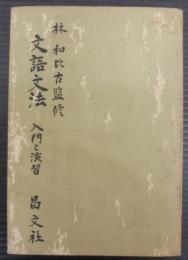 林和比古監修
文語文法
入門と演習
昌文社